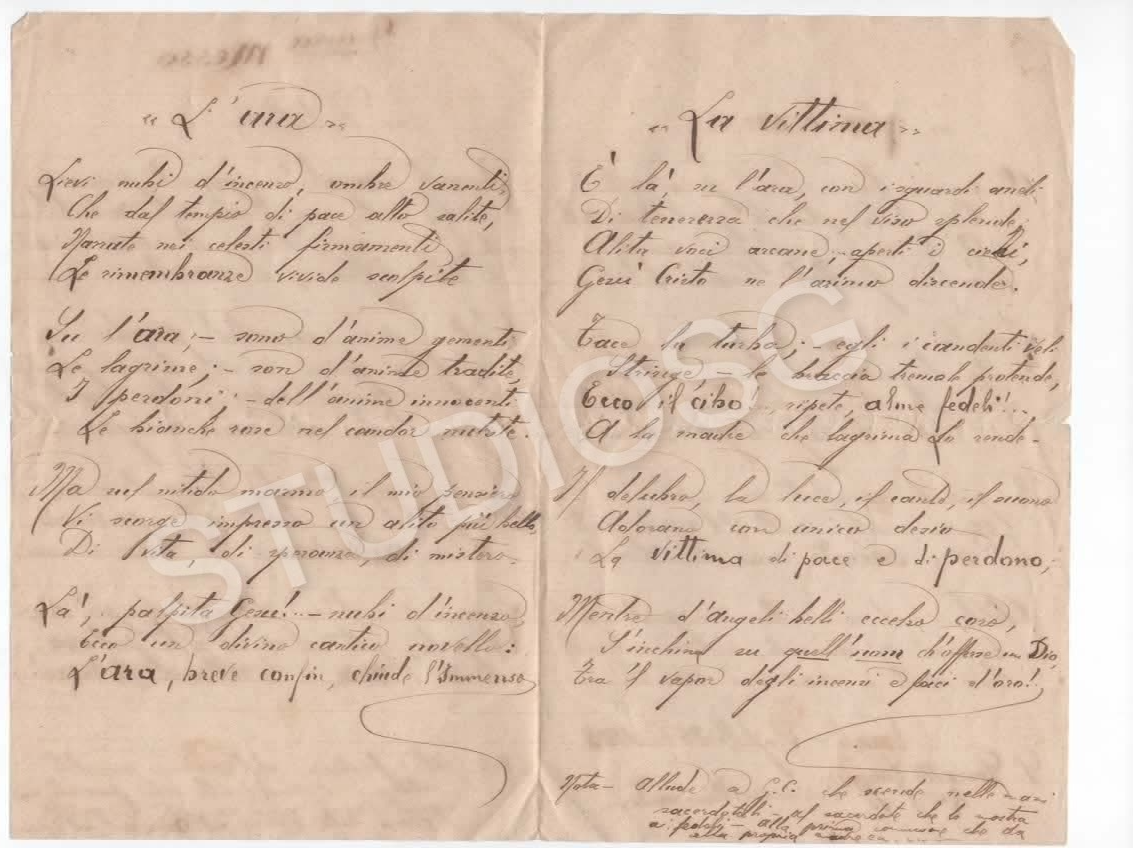 « L'ara »
Lievi nubi d'incenso, ombre vanenti
Che dal tempio di pace alto salite,
Narrate nei celesti firmamenti
Le rimembranze vivide scolpite
Su l'ara; – sono d'anime gementi
Le lagrime; – son d'anime tradite,
I perdoni; – dell'anime innocenti
Le bianche rose nel candor nutrite.
Ma sul nitido marmo, il mio pensiero
Vi scorge impresso un alito più bello,
Di vita, di speranza, di mistero –
Là!, palpita Gesù!... – nubi d'incenso,
Ecco un divino cantico novello:
L'ara, breve confin, chiude l'Immenso
« La vittima »
È là, su l'ara, con i sguardi aneli
Di tenerezza che nel viso splende;
Alita voci arcane... aperti i cieli,
Gesù Cristo ne l'animo discende.
Tace la turba; – egli i candenti veli
Stringe – le braccia tremole protende,
Ecco il cibo!... ripete, alme fedeli!...
A la madre che lagrima Lo rende –
Il delubro, la luce, il canto, il suono
Adorano con unico desio
La vittima di pace e di perdono;
Mentre d'angeli belli eccelso coro,
S'inchina su quell'uom ch'offre un Dio,
Tra 'l vapor degli incensi e faci d'oro!
Nota – Allude a G.C. che scende nelle mani
sacerdotali – al sacerdote che lo mostra
ai fedeli – alla prima comunione che da
alla propria
STUDIOSG